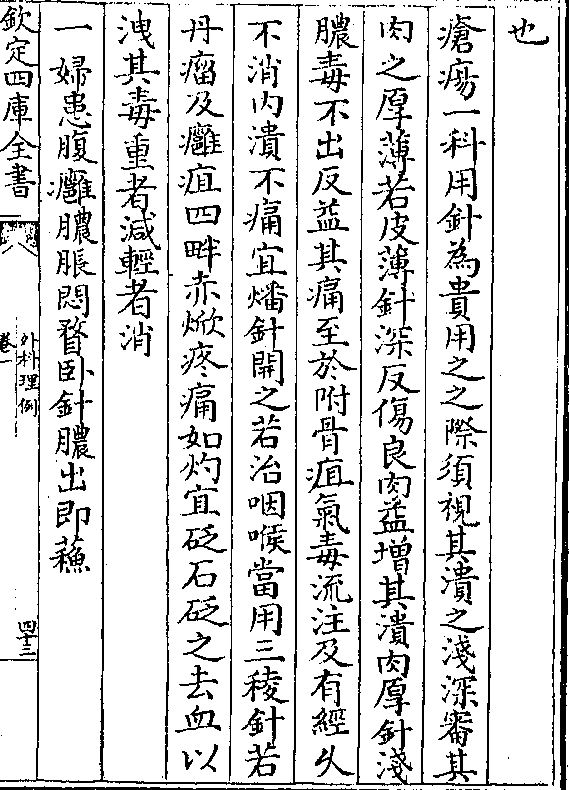 也
瘡瘍一科用針為貴用之之際須視其潰之淺深審其
肉之厚薄若皮薄針深反傷良肉益增其潰肉厚針淺
膿毒不出反益其痛至於附骨疽氣毒流注及有經久
不消内潰不痛宜燔針開之若治咽喉當用三稜針若
丹瘤及癰疽四畔赤焮疼痛如灼宜砭石砭之去血以
洩其毒重者減輕者消
一婦患腹癰膿脹悶瞀卧針膿出即蘇
欽定四庫全書
外科理例
卷一
四十三